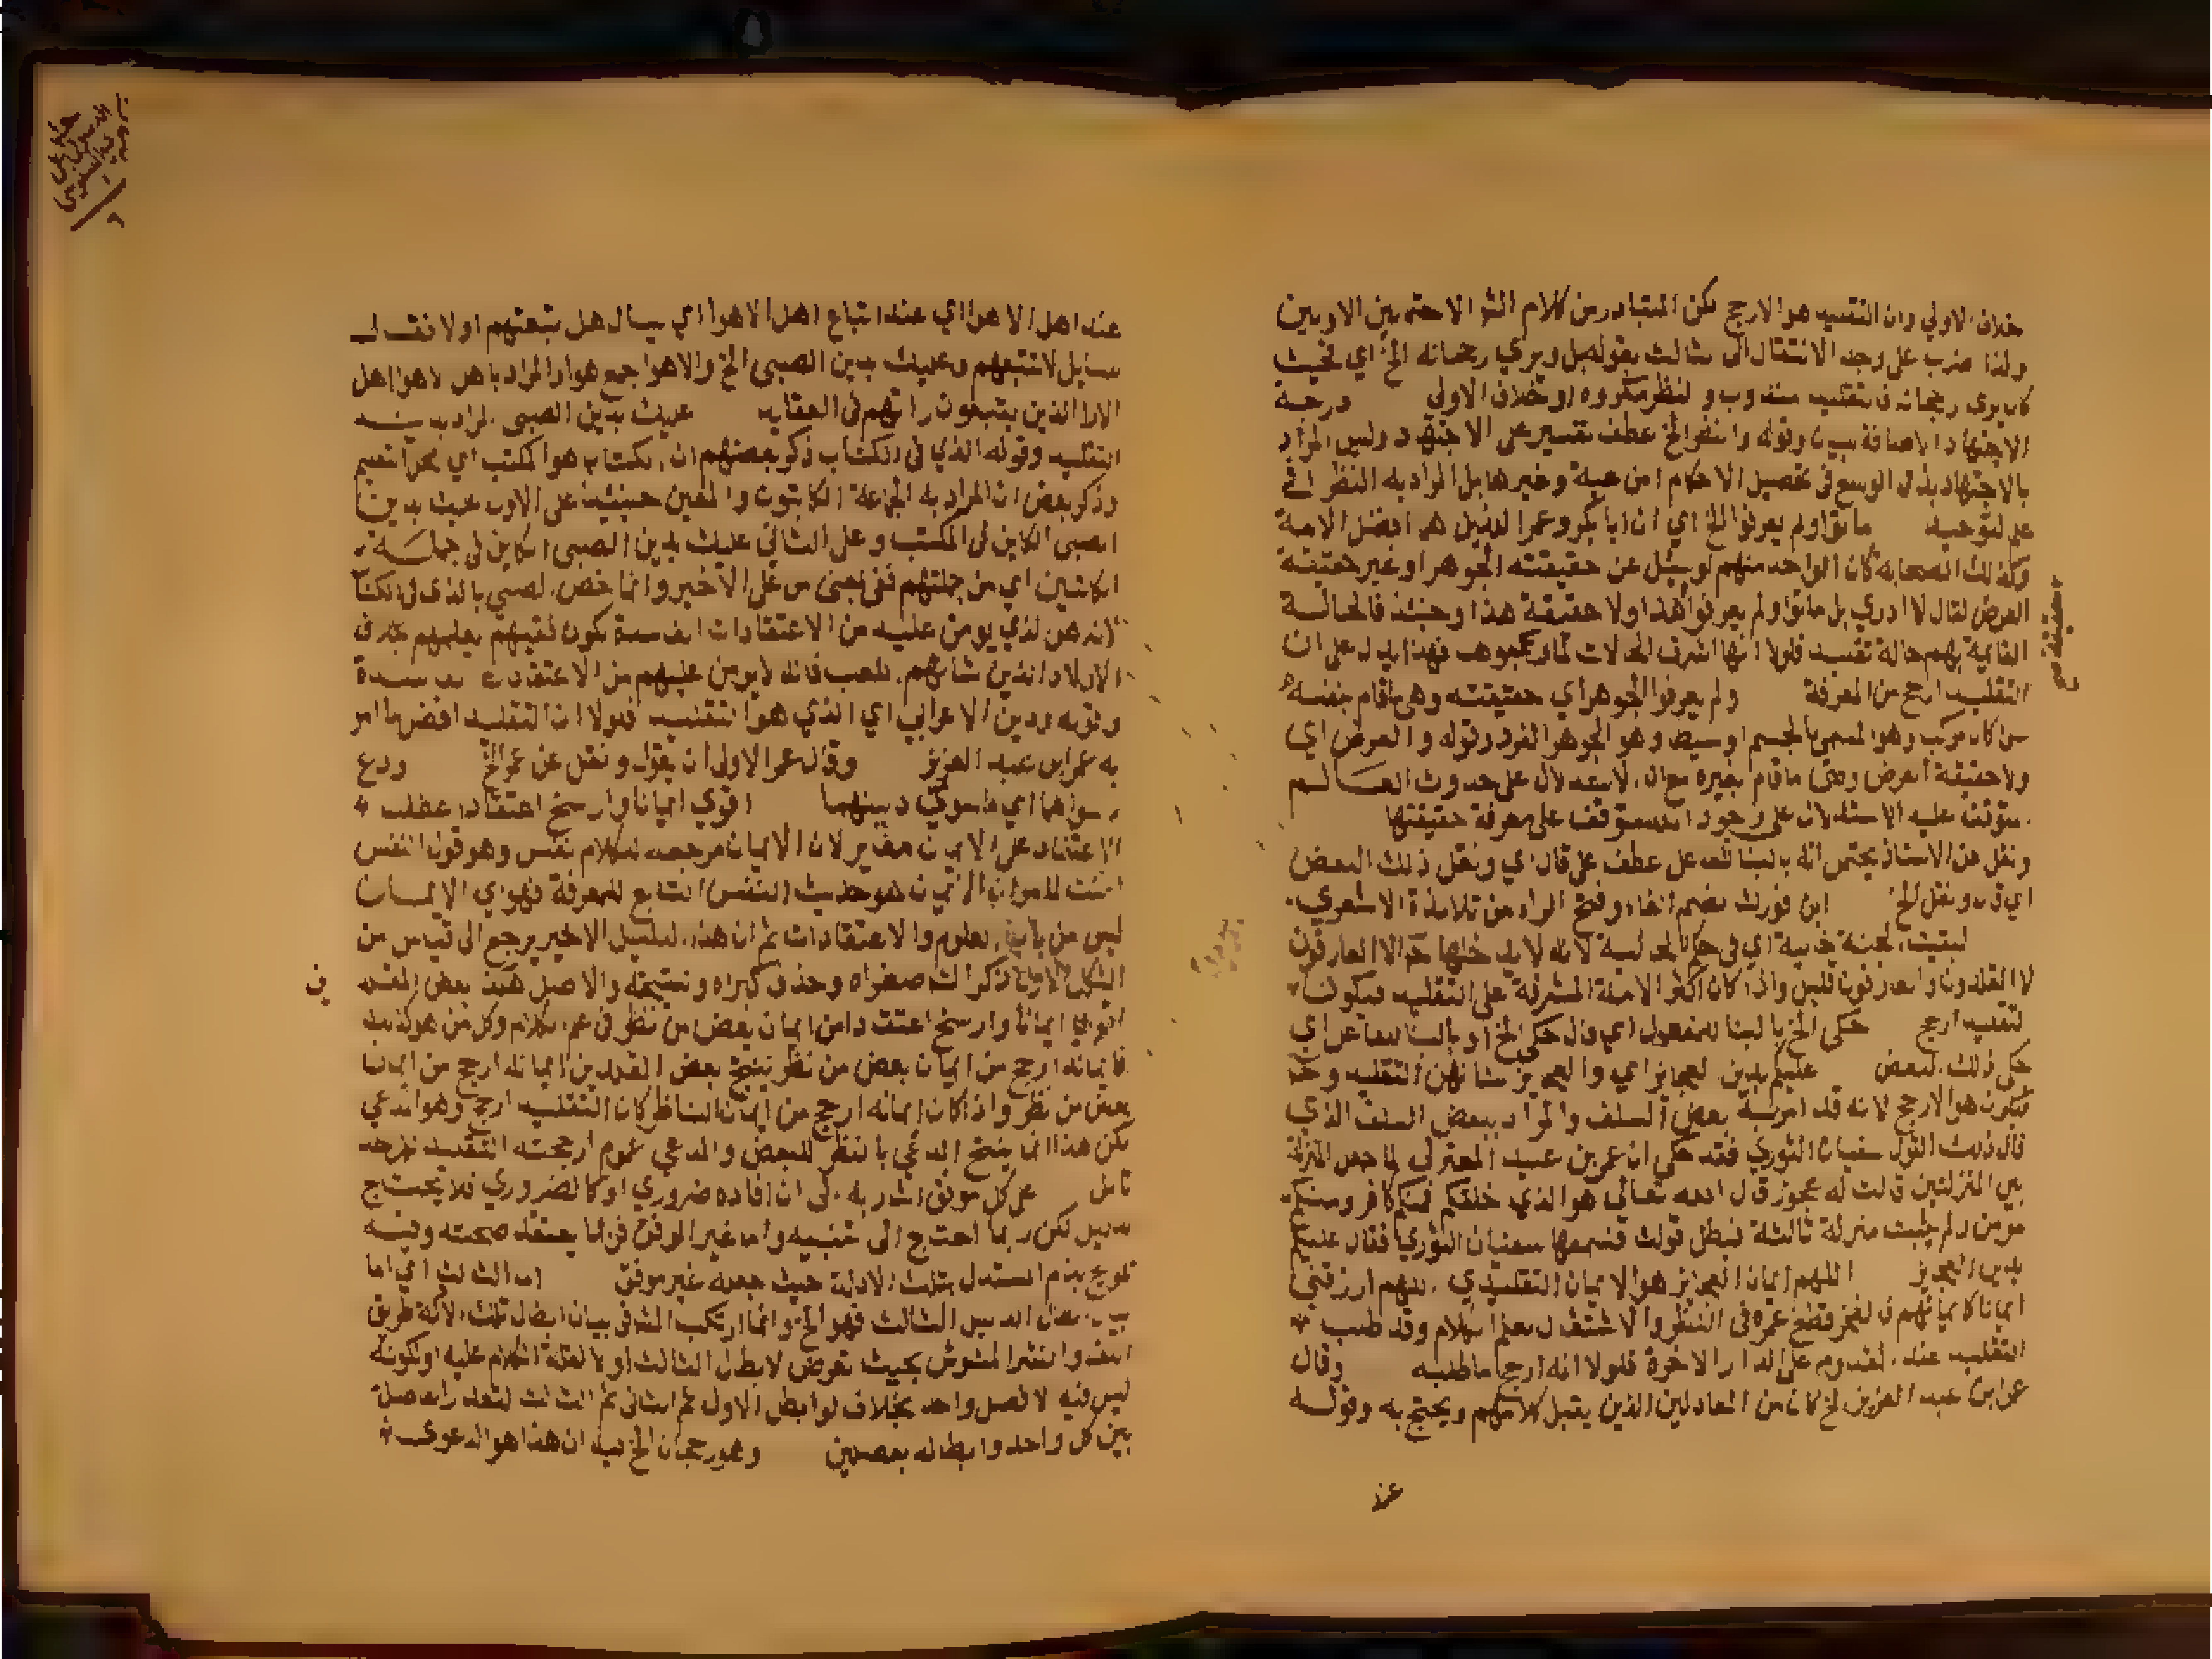 خلاف الاولي وان التقليد هو الارجح لكن المتبادر من كلام الشو الاحتمالين الاولين
ولذا ضرب على وجه الانتقال الى ثالث بقوله بل ويري رجحانه الخ اي فحيث
كان يرى رجحانه فالتقليد مندوب والنظر مكروه او خلاف الاولى درجة
الاجتهاد الاضافة بيان وقوله والنظر الخ عطف تفسير على الاجتهاد وليس المراد
بالاجتهاد بذل الوسع في تحصيل الاحكام من عبة وغيرها بل المراد به النظر في
علم التوحيد ماتوا ولم يعرفوا الخ اي ان ابا بكر وعمر اللذين هم افضل الامة
وكذلك الصحابة كان الواحد منهم لو سئل عن حقيقته الجوهر او غير حقيقة
العرض لقال لا ادري بل ماتوا ولم يعرفوا هذا ولا حقيقة هذا وحينئذ فالحالة
القايمة بهم حالة تقليد فلولا انها اشرف الحالات لما ارتكبوها فهذا يدل على ان
التقليد ارجح من المعرفة ولم يعرفوا الجوهر اي حقيقته وهي ما قام بنفسه
سواكان مركب وهو المسمى بالجسم او بسيط وهو الجوهر الفرد وقوله والعرض اي
ولا حقيقة العرض وهي ما قام بغيره محال الاستدلال على حدوث العالم
يتوقف عليه الاستدلال على وجود الله يتوقف على معرفة حقيقتها
ونقل عن الاستاذ يحتمل انه بالبنا للفاعل عطف على قال اي ونقل ذلك البعض
اي قال ونقل الخ ابن فورك بضم الفاء وفتح الراء من تلامذة الاشعري
لبقيت الجنة خالية اي في حكم الخالية لانه لا يدخلها ح الا العارفون
لا المقلدون والعارفون قليل واذا كان اكثر الامة المشرفة على التقليد فيكون
التقليد ارجح حكى الخ بالبنا للمفعول اي قال حكى الخ او بالبنا للفاعل اي
حكى ذلك البعض عليكم بدين العجايز اي والعجايز شانهن التقليد وح
فيكون هو الارجح لانه قد امر به بعض السلف والمراد ببعض السلف الذي
قال ذلك القول سفيان الثوري فقد حكي ان عمر بن عبيد المعتزلي لما جعل المنزلة
بين المنزلتين قالت له عجوز قال الله تعالى هو الذي خلقكم فمنكم كافر ومنكم
مومن ولم يثبت منزلة ثالثة فبطل قولك فسمعها سفيان الثوري فقال عليكم
بدين العجايز اللهم ايمان العجايز هو الايمان التقليدي اللهم ارزقني
ايمانا كايمانهم فالفخر قطع عمره في النظر والاشتغال بعلم الكلام وقد طلب
التقليد عند القدوم على الدار الاخرة فلولا انه ارجح ما طلبه وقال
عمر ابن عبد العزيز الخ كان من العادلين الذين يقبل كلامهم ويحتج به وقوله
حقيقة صح
عند
عند اهل الاهوا اي عند اتباع اهل الاهوا اي يسال هل يتبعهم اولا فقال
سايل لا تتبعهم وعليك بدين الصبي الخ والاهوا جمع هوا والمراد باهل الاهوا اهل
الارا الذين يتبعون رايهم في العقايد عليك بدين الصبي المراد بدينه
التقليد وقوله الذي في الكتاب ذكر بعضهم ان الكتاب هو المكتب اي محل التعليم
وذكر بعض ان المراد به الجماعة الكاتبون والمعين حينئذ على الاول عليك بدين
الصبي الكاين في المكتب وعلى الثاني عليك بدين الصبي الكاين في جملة
الكاتبين اي من جملتهم ففي بمعنى من على الاخير وانما خص الصبي بالذي في الكتاب
لانه هو الذي يومن عليه من الاعتقادات الفاسدة لكون فقيههم يعلمهم بخلاف
الاولاد الذين شانهم اللعب فانه لا يومن عليهم من الاعتقادات الفاسدة
وقوله ودين الاعرابي اي الذي هو التقليد فلولا ان التقليد افضل ما امر
به عمر ابن عبد العزيز وقال عمر الاولى ان يقول ونقل عن عمر الخ ودع
ما سواهما اي ما سوى دينهما اقوى ايمانا وارسخ اعتقادا عطف
الاعتقاد على الايمان مغاير لان الايمان مرجعه لكلام نفسي وهو قول النفس
امنت فالايمان هو حديث النفس التابع للمعرفة فهو اي الايمان
ليس من باب العلوم والاعتقادات ثم ان هذا الدليل الاخير يرجع الى قياس من
الشكل الاول ذكر الشو صغراه وحذف كبراه ونتيجته والاصل هكذا بعض المقلدين
اقوي ايمانا وارسخ اعتقادا من ايمان بعض من نظر في علم الكلام وكل من هو كذلك
فايمانه ارجح من ايمان بعض من نظر ينتج بعض المقلدين ايمانه ارجح من ايمان
بعض من نظر واذا كان ايمانه ارجح من ايمان الناظر كان التقليد ارجح وهو المدعي
لكن هذا انما ينتج المدعي بالنظر للبعض والمدعي عموم ارجحية التقليد
تامل على كل موفق اشار به الى ان افاده ضروري او كالضروري فلا يحتاج
لدليل لكن ربما احتاج الى تنبيه واما غير الموفق فربما يعتقد صحته وفيه
تلويح بذم المستدل بتلك الادلة حيث جعله غير موفق اما الثالث اي اما
بيان ابطال الدليل الثالث فهو الخ وانما ارتكب الشو في بيان ابطال تلك الادلة طريق
اللف والنشر المشوش بحيث تعرض لابطال الثالث اولا لقلة الكلام عليه او لكونه
ليس فيه الا فصل واحد بخلاف لو ابطل الاول ثم الثاني ثم الثالث لتعدد الفاصل
بين كل واحد وابطاله بفصلين وهو رجحان الخ فيه ان هذا هو الدعوى